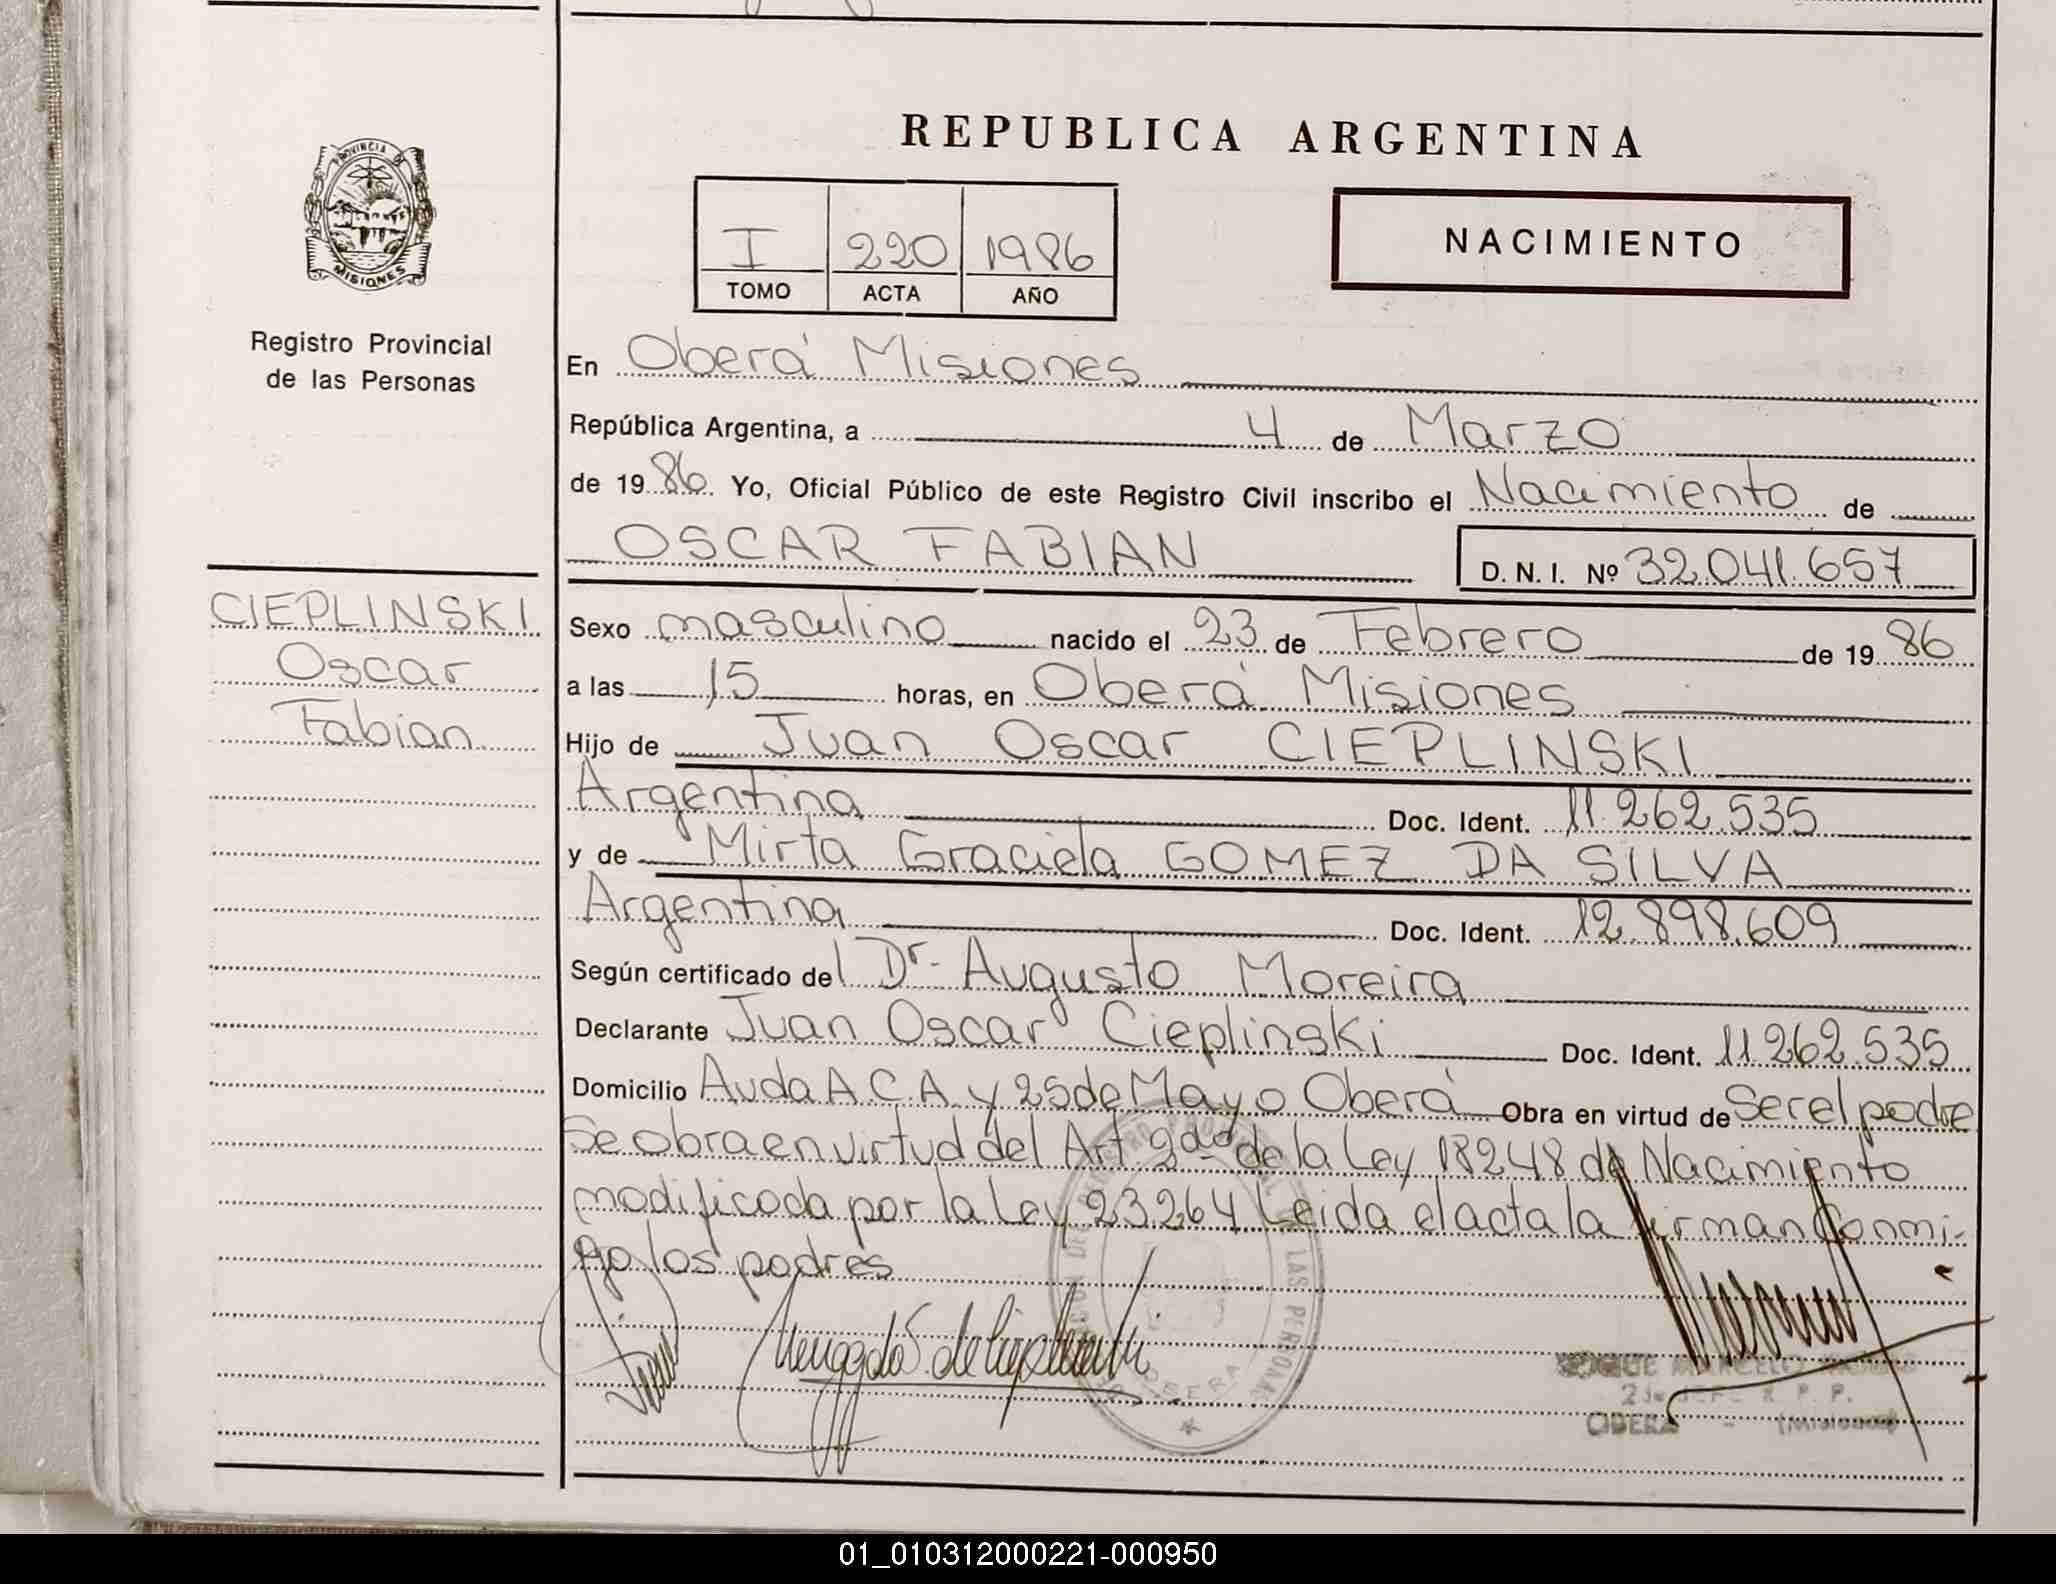 REPUBLICA ARGENTINA
PROVINCIA DE
MISIONES
Registro Provincial
de las Personas
I 220 1986
TOMO ACTA AÑO
NACIMIENTO
En Oberá Misiones
República Argentina, a 4 de Marzo
de 19 86 Yo, Oficial Público de este Registro Civil inscribo el Nacimiento de
OSCAR FABIAN D. N. I. Nº 32.041.657
CIEPLINSKI
Oscar
Fabian
Sexo masculino nacido el 23 de Febrero de 19 86
a las 15 horas, en Oberá Misiones
Hijo de Juan Oscar CIEPLINSKI
Argentina Doc. Ident. 11.262.535
y de Mirta Graciela GOMEZ DA SILVA
Argentina Doc. Ident. 12.898.609
Según certificado del Dr. Augusto Moreira
Declarante Juan Oscar Cieplinski Doc. Ident. 11.262.535
Domicilio Avda A.C.A. y 25 de Mayo Oberá Obra en virtud de Ser el padre
Se obra en virtud del Art 2do de la Ley 18248 de Nacimiento
modificada por la Ley 23264 Leida el acta la firman conmi-
go los padres
OBERA
R. P. P.
(Misiones)
01_010312000221-000950